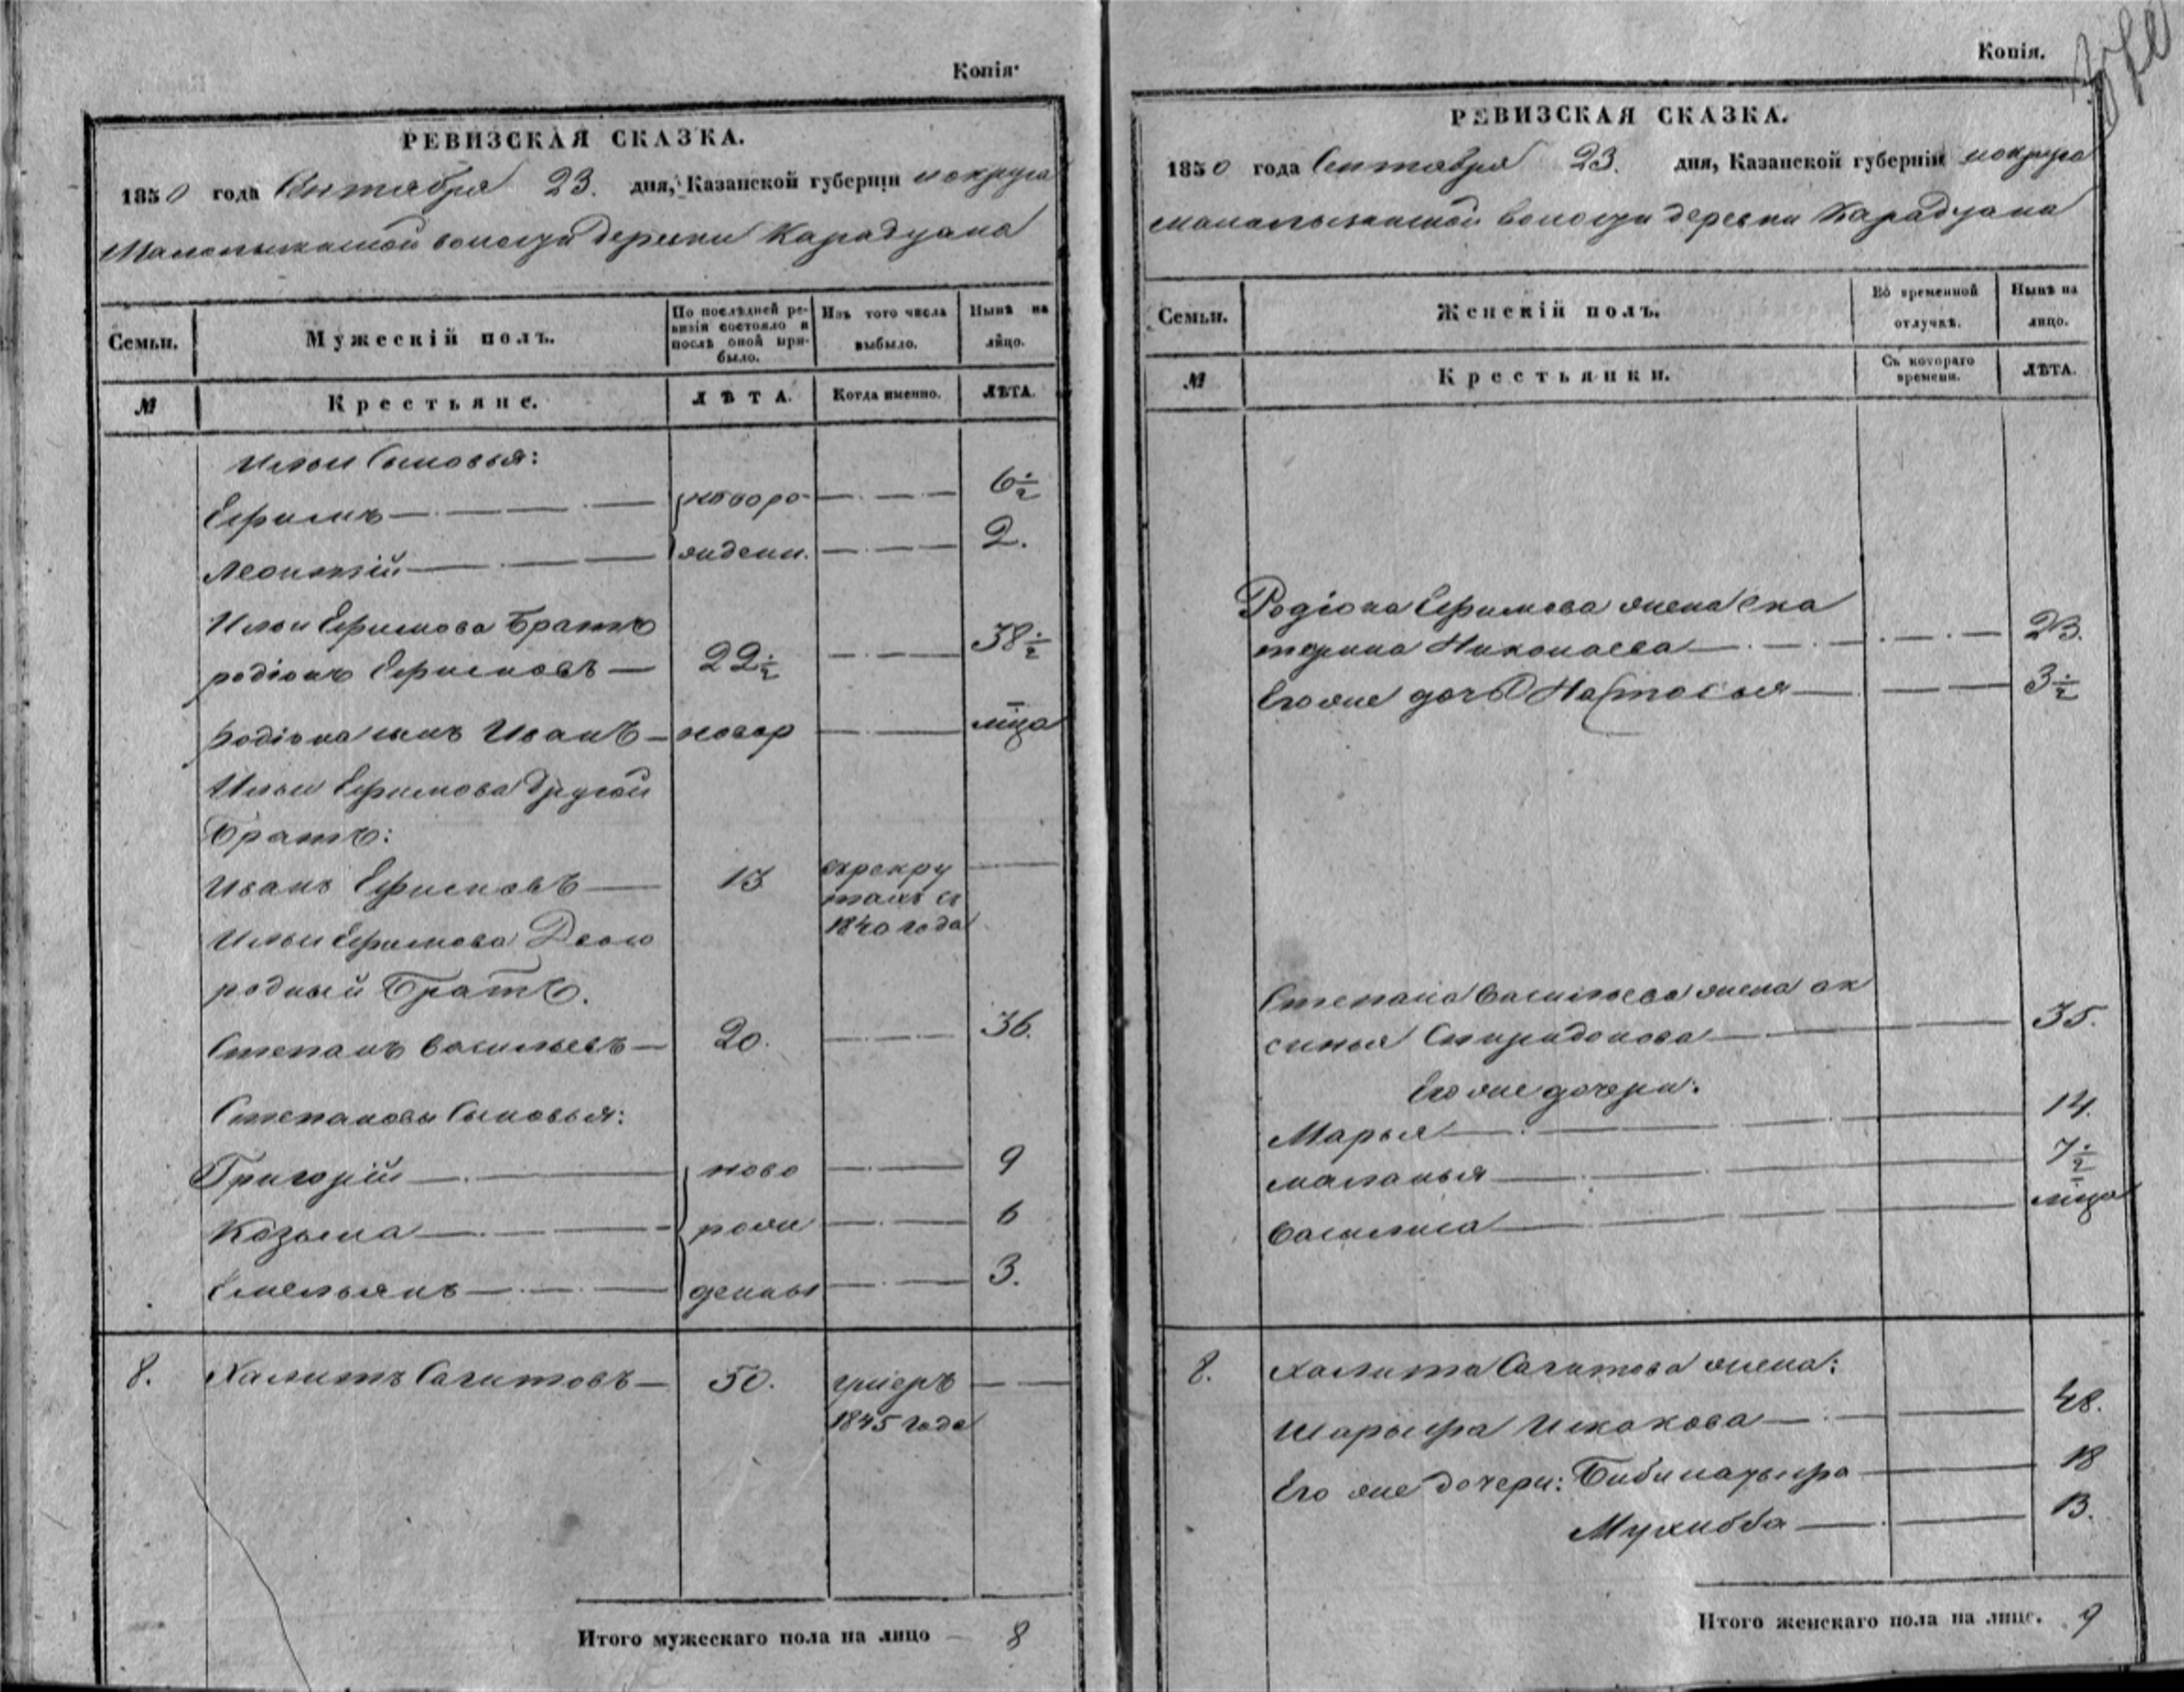 Копія.
РЕВИЗСКАЯ СКАЗКА.
1850 года Сентября 23. дня, Казанской губерніи округа
волости деревни Карадуана
Семьи. Мужескій полъ. По послѣдней ревизіи состояло и послѣ оной прибыло. Изъ того числа выбыло. Нынѣ на лицо.
№ Крестьяне. ЛѢТА. Когда именно. ЛѢТА.
Ильи Сыновья:
Ефимъ новоро 6½
Леонтій жденн. 2.
Ильи Ефимова Братъ
родіонъ Ефимовъ 22½ 38½
Родіона сынъ Иванъ новор мца
Ильи Ефимова другой
Братъ:
Иванъ Ефимовъ 13 врекру
тахъ съ
1840 года
Ильи Ефимова Двою
родный Братъ.
Степанъ Васильевъ 20. 36.
Степановы Сыновья:
Григорій ново 9
Козьма рож 6
Емельянъ денны 3.
8. Халитъ Сагитовъ 50. умеръ
1845 года
Итого мужескаго пола на лицо 8
Копія.
РЕВИЗСКАЯ СКАЗКА.
1850 года Сентября 23. дня, Казанской губерніи округа
волости деревни Карадуана
Семьи. Женскій полъ. Во временной отлучкѣ. Нынѣ на лицо.
№ Крестьянки. Съ котораго времени. ЛѢТА.
Родіона Ефимова жена Ека
терина Николаева 23.
Его же дочь Настасья 3½
Степана Васильева жена ак
синья Спиридонова 35.
Его же дочери:
Марья 14.
маланья 7½
Василиса мца
8. Халита Сагитова жена:
Шарыфа Искакова 48.
Его же дочери: Бибинарыфа 18
Мухибба 13.
Итого женскаго пола на лицо. 9